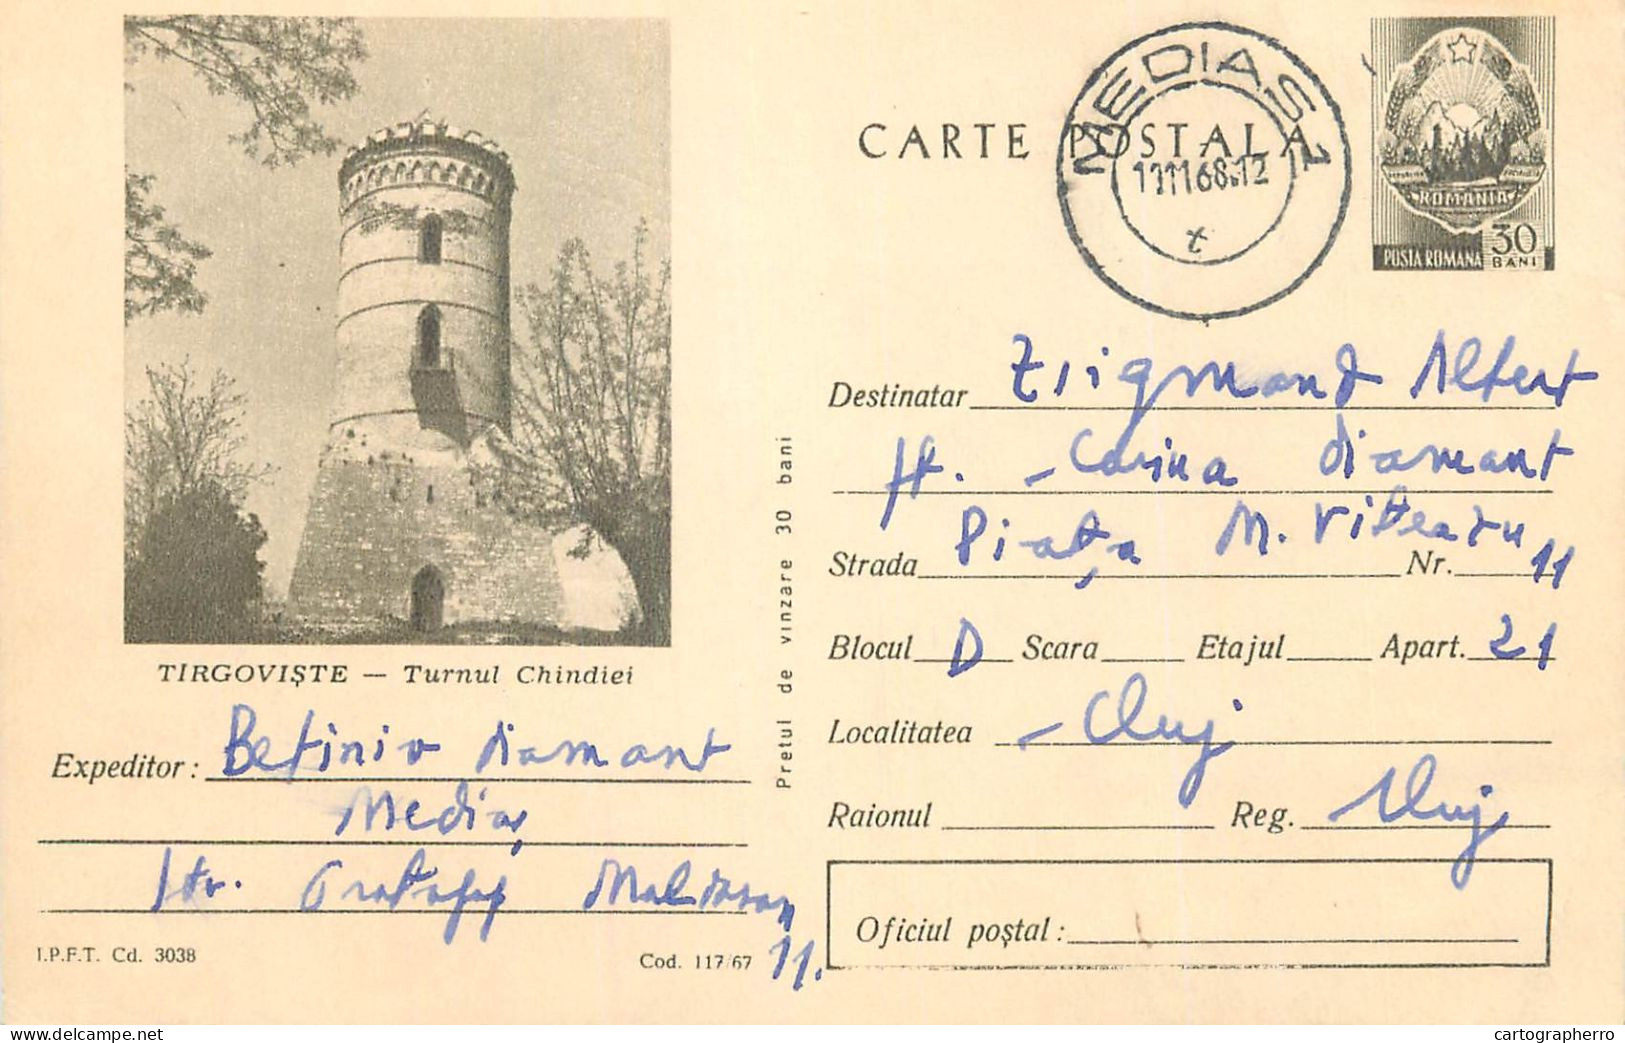 CARTE POSTALA
MEDIAS 1
68.12
t
ROMANIA
POSTA ROMANA
30
BANI
TIRGOVIȘTE — Turnul Chindiei
Expeditor: diamant
Mediaș
Str.
11.
I.P.F.T. Cd. 3038
Cod. 117/67
Pretul de vinzare 30 bani
Destinatar Albert
Carina diamant
Strada Piața M. Viteazu Nr. 11
Blocul D Scara Etajul Apart. 21
Localitatea - Cluj
Raionul Reg. Cluj
Oficiul poștal:
delcampe.net
cartographerro